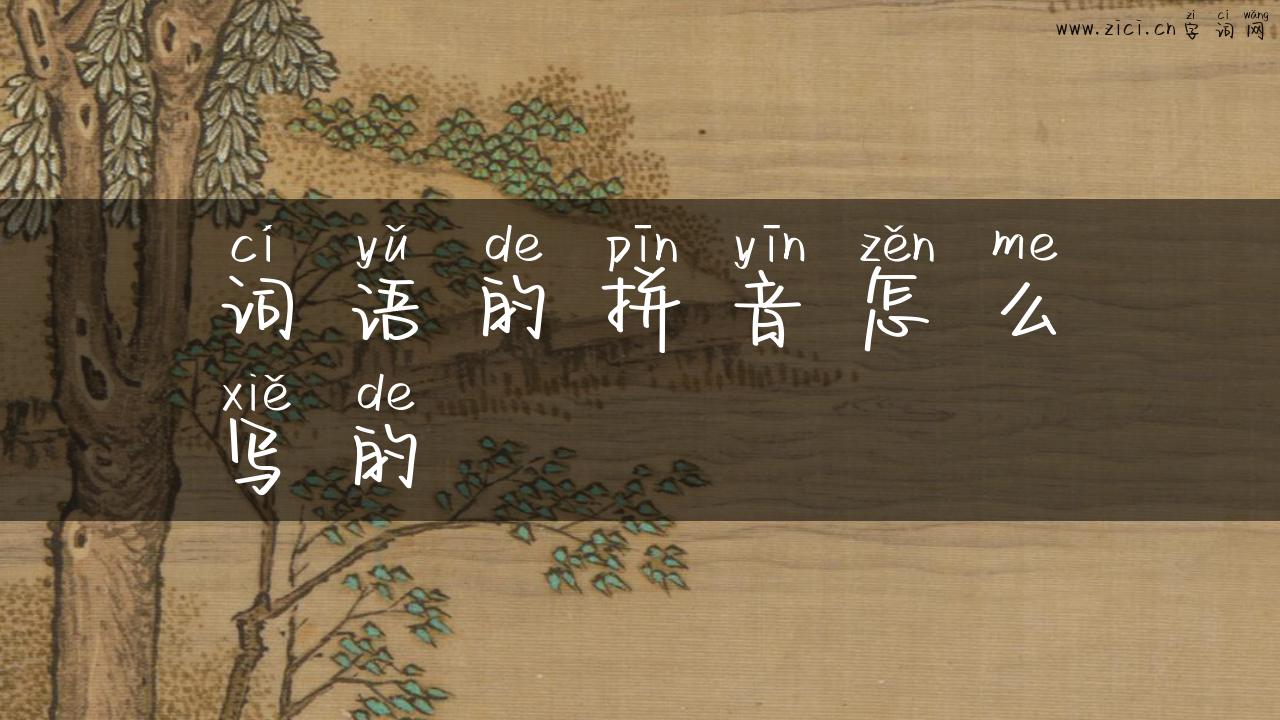 zì cí wǎng
www.zici.cn 字词网
cí yǔ de pīn yīn zěn me
词语的拼音怎么
xiě de
写的